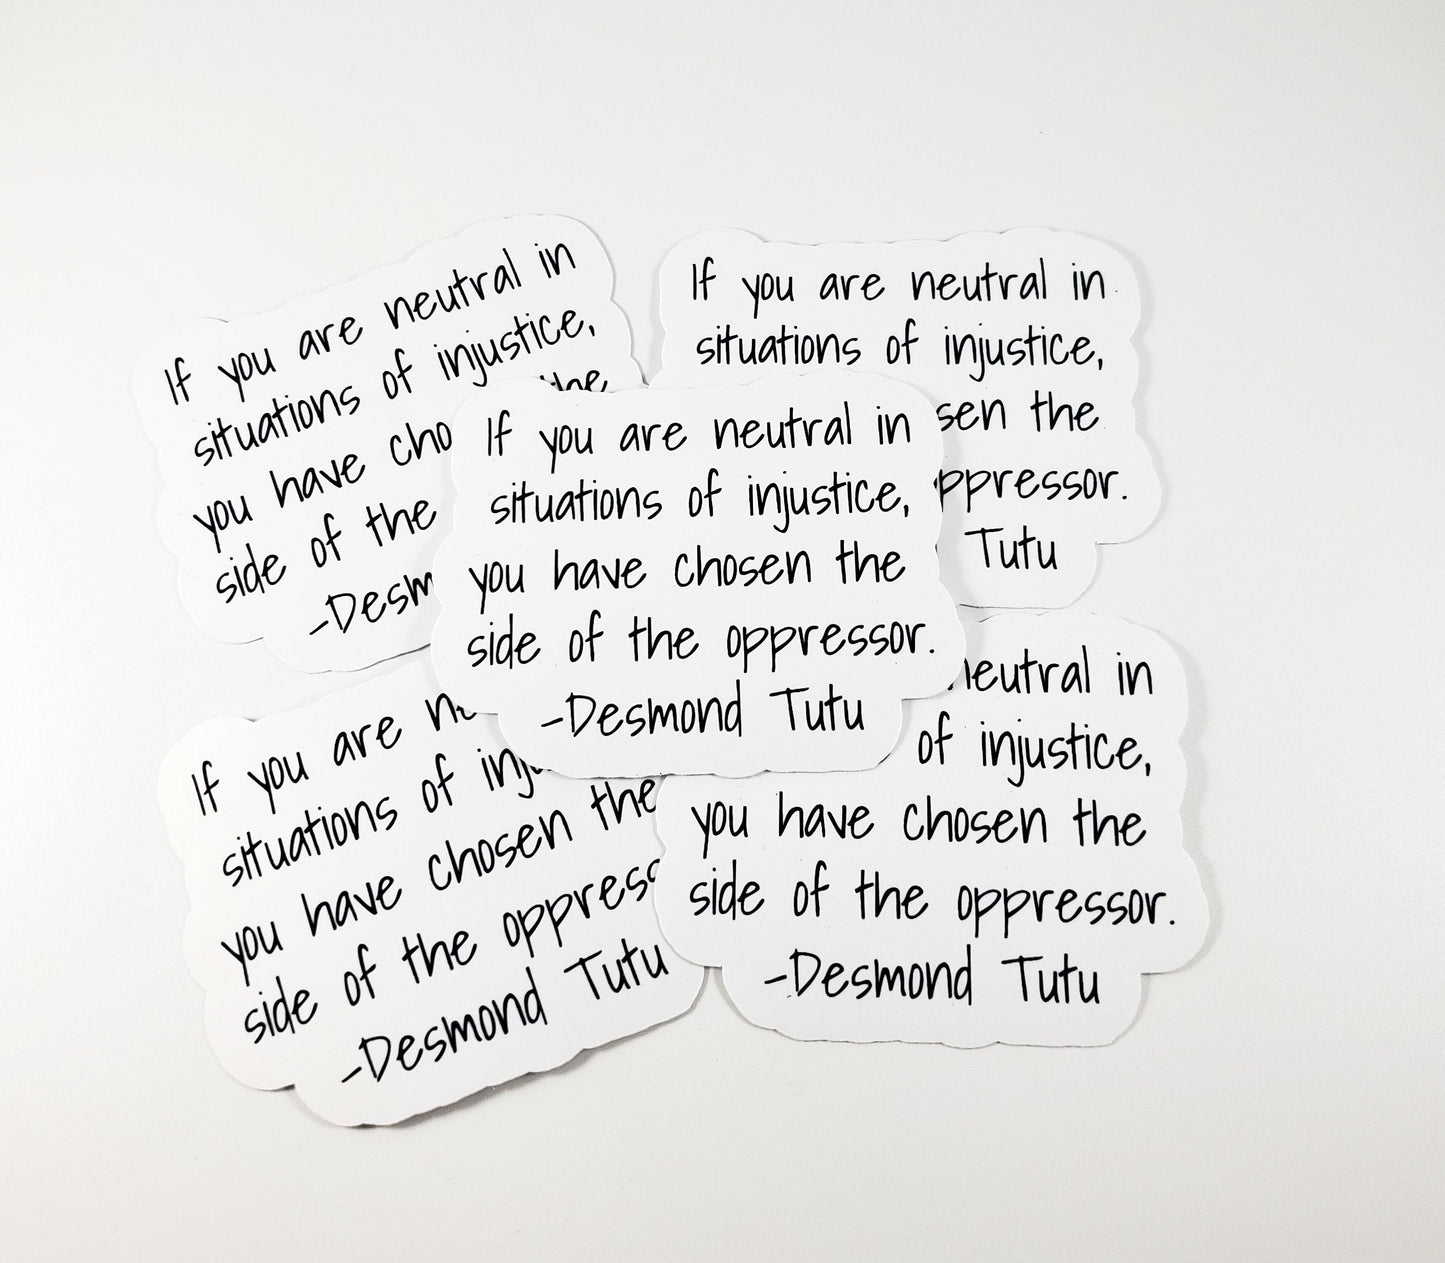 If you are neutral in
situations of injustice,
you have cho the
side of the
-Desm
If you are neutral in
situations of injustice,
the
oppressor.
Tutu
If you are neutral in
situations of injustice,
you have chosen the
side of the oppressor.
-Desmond Tutu
If you are
situations of
you have chosen the
side of the
-Desmond Tutu
neutral in
of injustice,
you have chosen the
side of the oppressor.
-Desmond Tutu